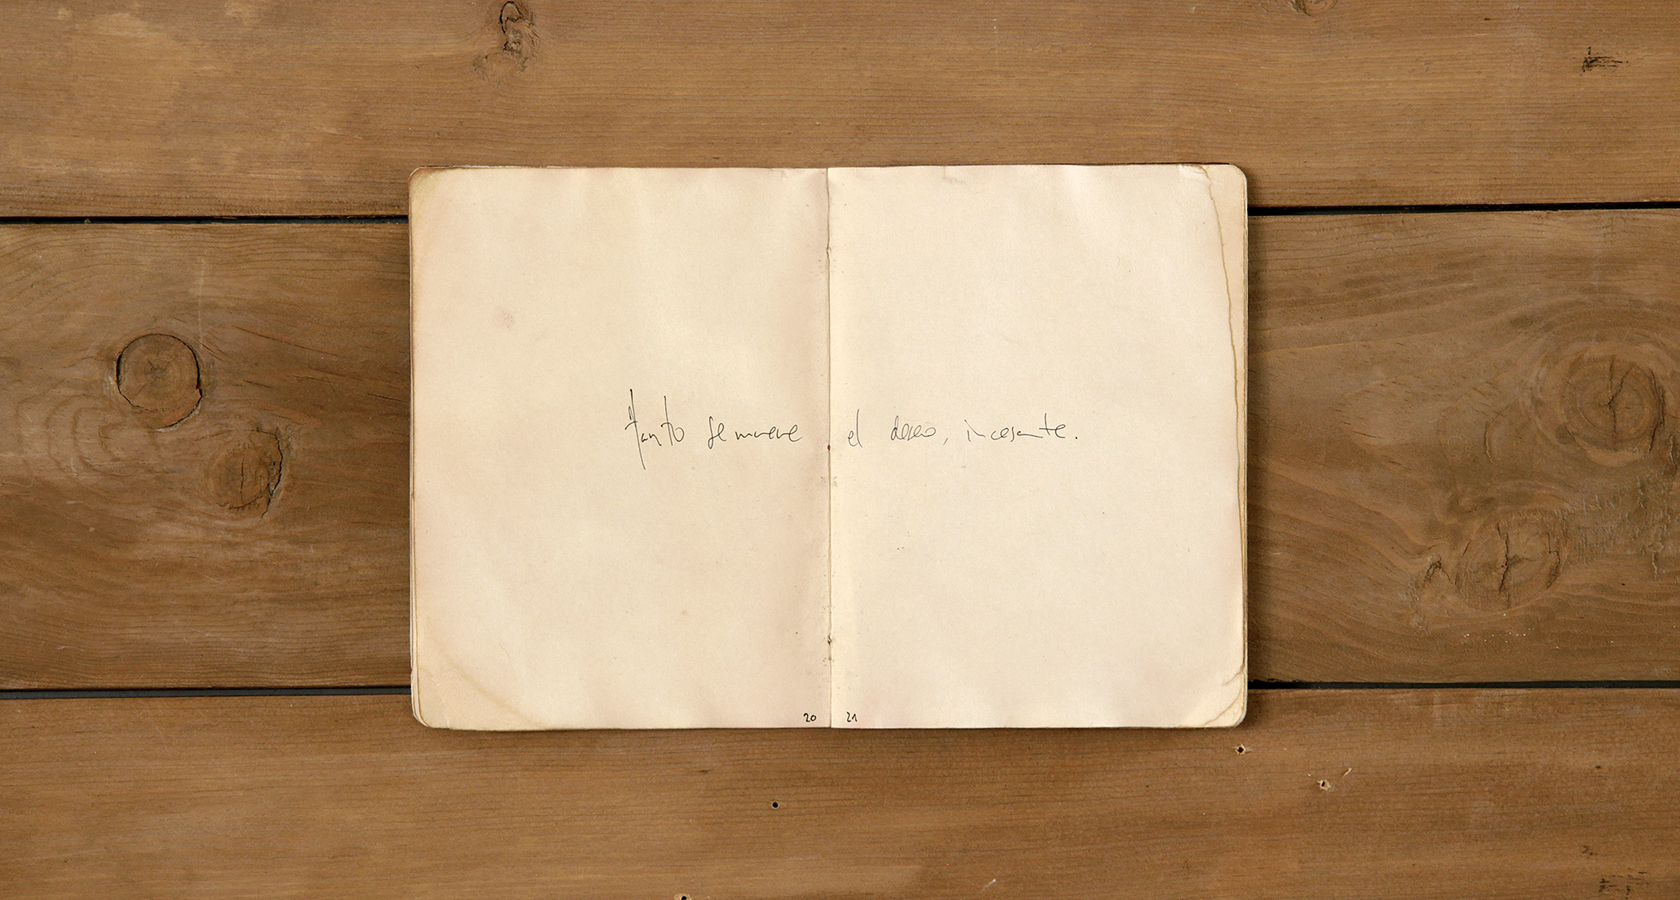 Tanto se mueve el deseo, incesante.
20 21